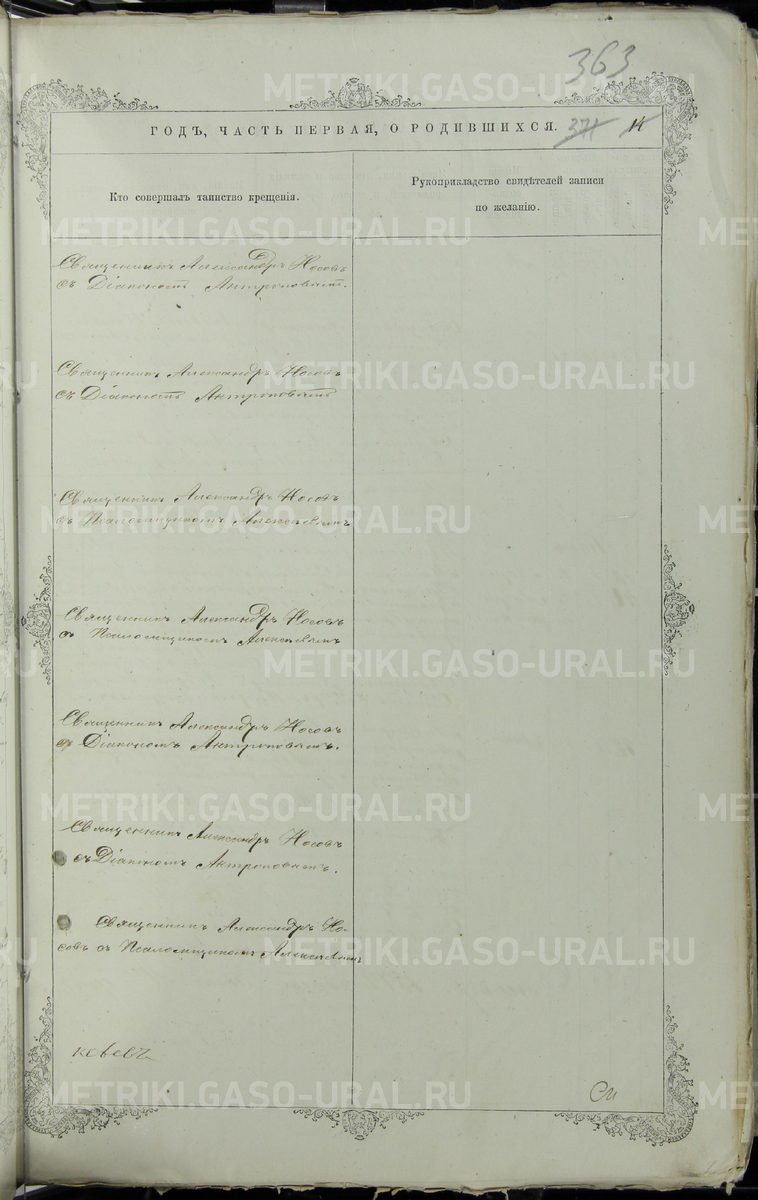 363
ГОДЪ, ЧАСТЬ ПЕРВАЯ, О РОДИВШИХСЯ.
371
14
Кто совершалъ таинство крещенія.
Рукоприкладство свидѣтелей записи
по желанію.
Священникъ Александръ Носовъ
съ Діакономъ Антроповымъ.
Священникъ Александръ Носовъ
съ Діакономъ Антроповымъ
Священникъ Александръ Носовъ
съ Псаломщикомъ Алексѣевымъ
Священникъ Александръ Носовъ
съ Псаломщикомъ Алексѣевымъ
Священникъ Александръ Носовъ
съ Діакономъ Антроповымъ.
Священникъ Александръ Носовъ
съ Діакономъ Антроповымъ.
Священникъ Александръ Но-
совъ съ Псаломщикомъ Алексѣевымъ
METRIKI.GASO-URAL.RU